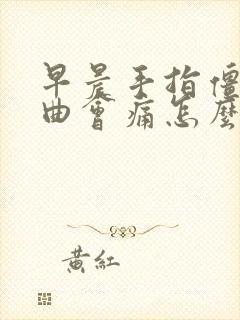 早晨手指僵
曲會痛怎麼
黃紅